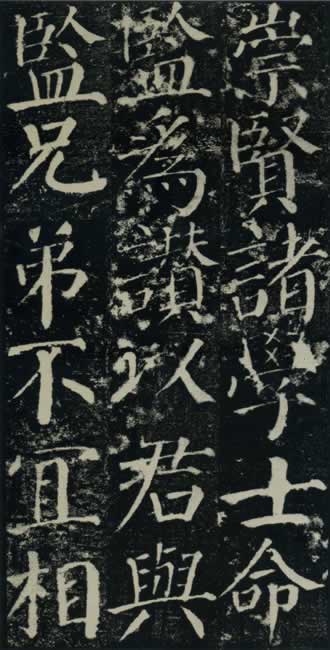 崇賢諸學士命
監為讃以君與
監兄弟不冝相